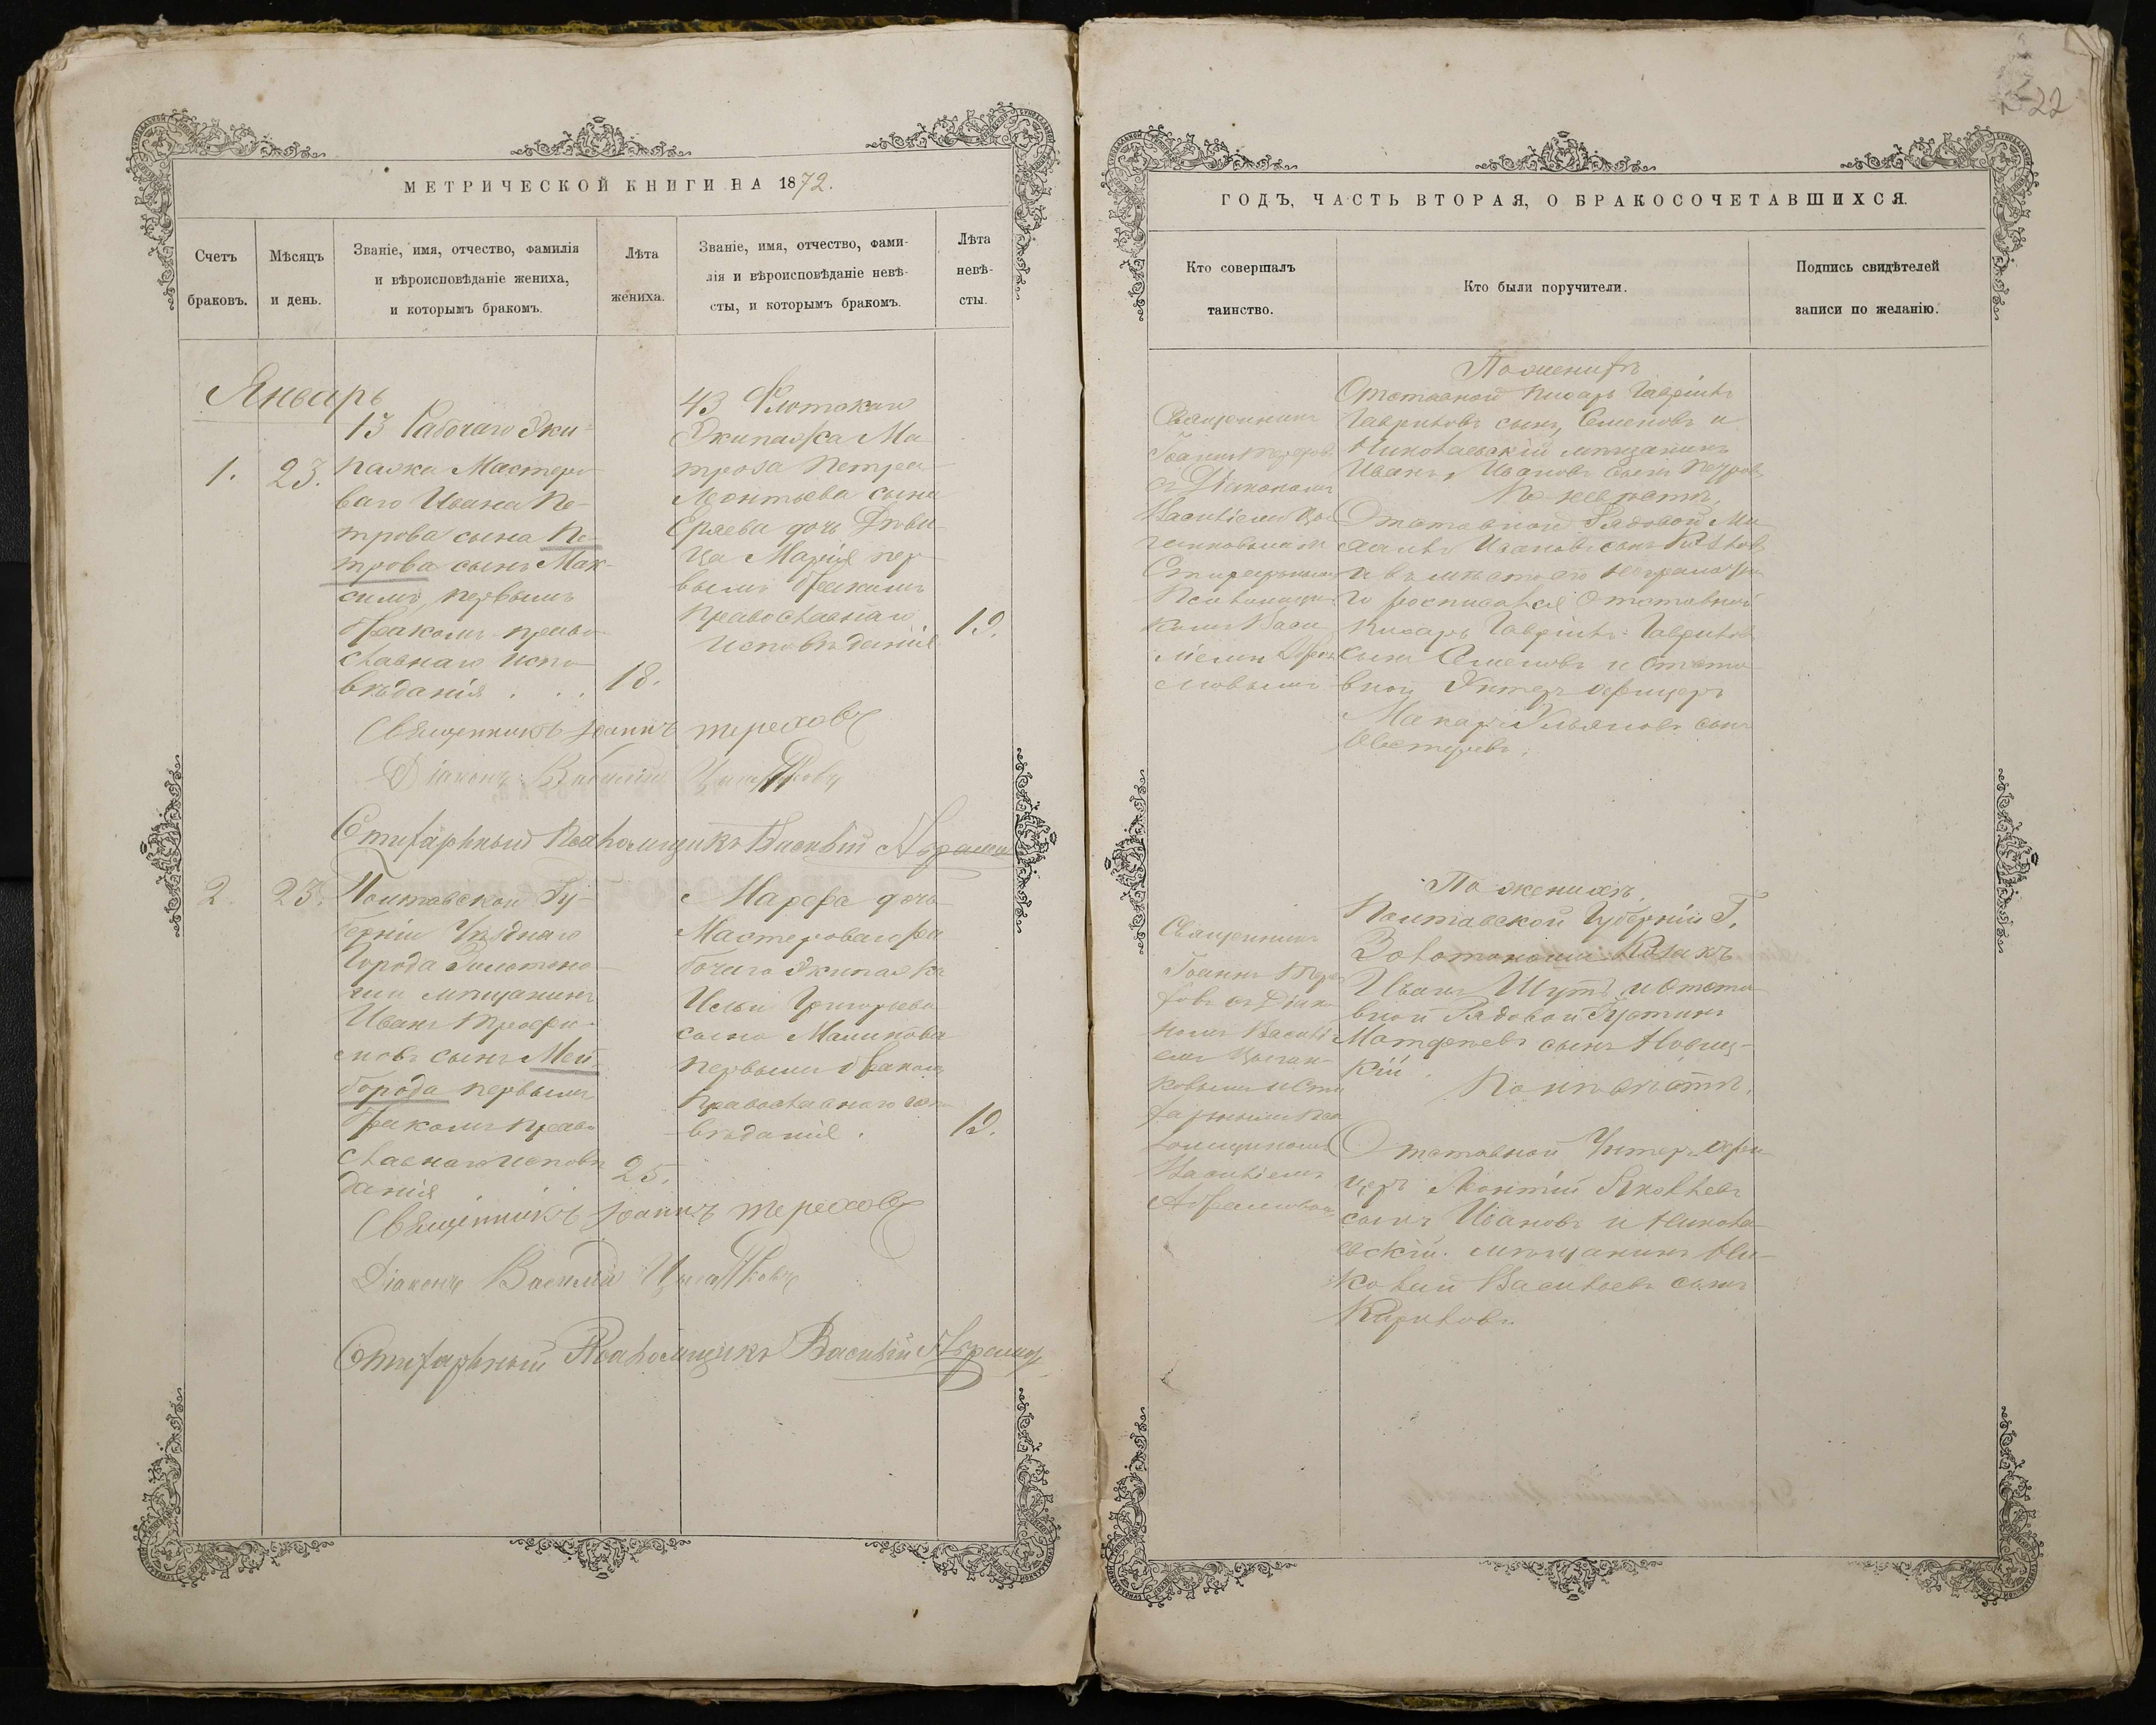 МЕТРИЧЕСКОЙ КНИГИ НА 1872.
Счетъ браковъ.
Мѣсяцъ и день.
Званіе, имя, отчество, фамилія
и вѣроисповѣданіе жениха,
и которымъ бракомъ.
Лѣта жениха.
Званіе, имя, отчество, фами-
лія и вѣроисповѣданіе невѣ-
сты, и которымъ бракомъ.
Лѣта невѣ-сты.
Январь
1. 23.
13 Рабочаго Эки-
пажа Мастеро-
ваго Ивана Пе-
трова сына Пе-
трова сынъ Мак-
симъ, первымъ
бракомъ право-
славнаго испо-
вѣданія . . .
18.
43 Флотскаго
Экипажа Ма-
троса Петра
Леонтьева сына
дочь Дѣви-
ца Марія пер-
вымъ бракомъ
православнаго
исповѣданія
19.
Священникъ Іоаннъ Тереховъ
Діаконъ Василій
Стихарный Псаломщикъ Василій Абрамов
2. 23.
Полтавской Гу-
берніи Уѣзднаго
Города Золотоно-
ши мѣщанинъ
Иванъ Трофи-
мовъ сынъ Мей-
борода первымъ
бракомъ право
славнаго исповѣ
данія . . .
25.
Марфа дочь
Мастероваго ра
бочаго экипажа
Ильи Григорьева
сына Маликова
первымъ бракомъ
Православнаго испо
вѣданія .
19.
Священникъ Іоаннъ Тереховъ
Діаконъ Василій
Стихарный Псаломщикъ Василій Абрамов
22
ГОДЪ, ЧАСТЬ ВТОРАЯ, О БРАКОСОЧЕТАВШИХСЯ.
Кто совершалъ таинство.
Кто были поручители.
Подпись свидѣтелей записи по желанію.
Священникъ
Іоаннъ Терехов
съ Діакономъ
Василіемъ
Стихарнымъ
Псаломщи
комъ Васи
ліемъ Абра
мовымъ
По женихѣ
Отставной писарь Гавріилъ
Гавриловъ сынъ, Семеновъ и
Николаевскій мѣщанинъ
Иванъ, Ивановъ сынъ Петров
По невѣстѣ,
Отставной Рядовой Ми
хаилъ Ивановъ сынъ
и въ мѣсто его неграмотна
го росписался Отставной
писарь Гавріилъ Гаврилов
сынъ Семеновъ и Отста
вной Унтеръ офицеръ
Макаръ Ульяновъ сынъ
Священникъ
Іоаннъ Тере
ховъ съ Діако
номъ Василі
емъ
и Сти
харнымъ Пса
ломщикомъ
Василіемъ
Абрамовым
По женихѣ,
Полтавской Губерніи Г.
Золотоноши Козакъ
Иванъ Шутъ и Отста
вной Рядовой Устинъ
Матфѣевъ сынъ Новиц-
кій.
По невѣстѣ,
Отставной Унтеръ офи
церъ Леонтій Яковлевъ
сынъ Ивановъ и Никола
евскій мѣщанинъ Ни-
колай Васильевъ сынъ
Кириловъ.